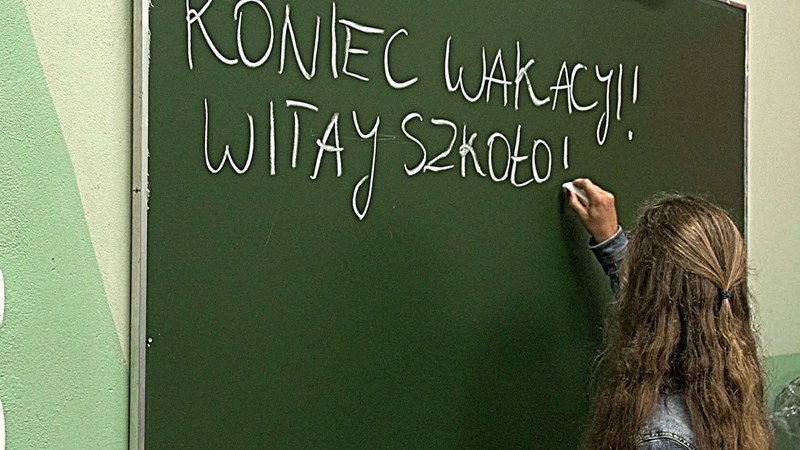 KONIEC WAKACYJ!!
WITAY SZKOŁO!